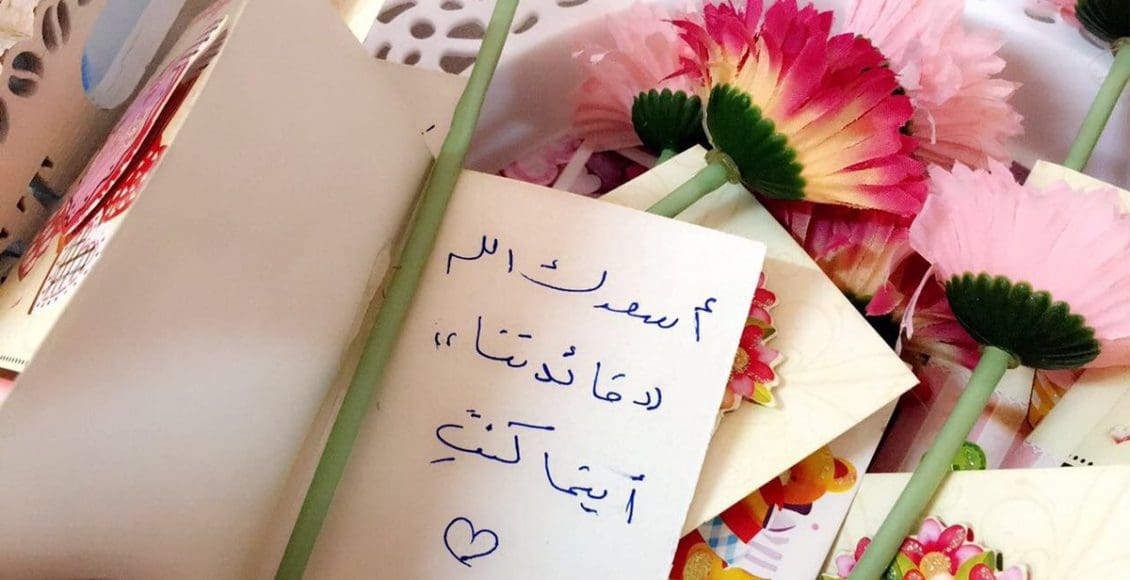 أسعدك الله
"قائدتنا"
أينما كنتِ